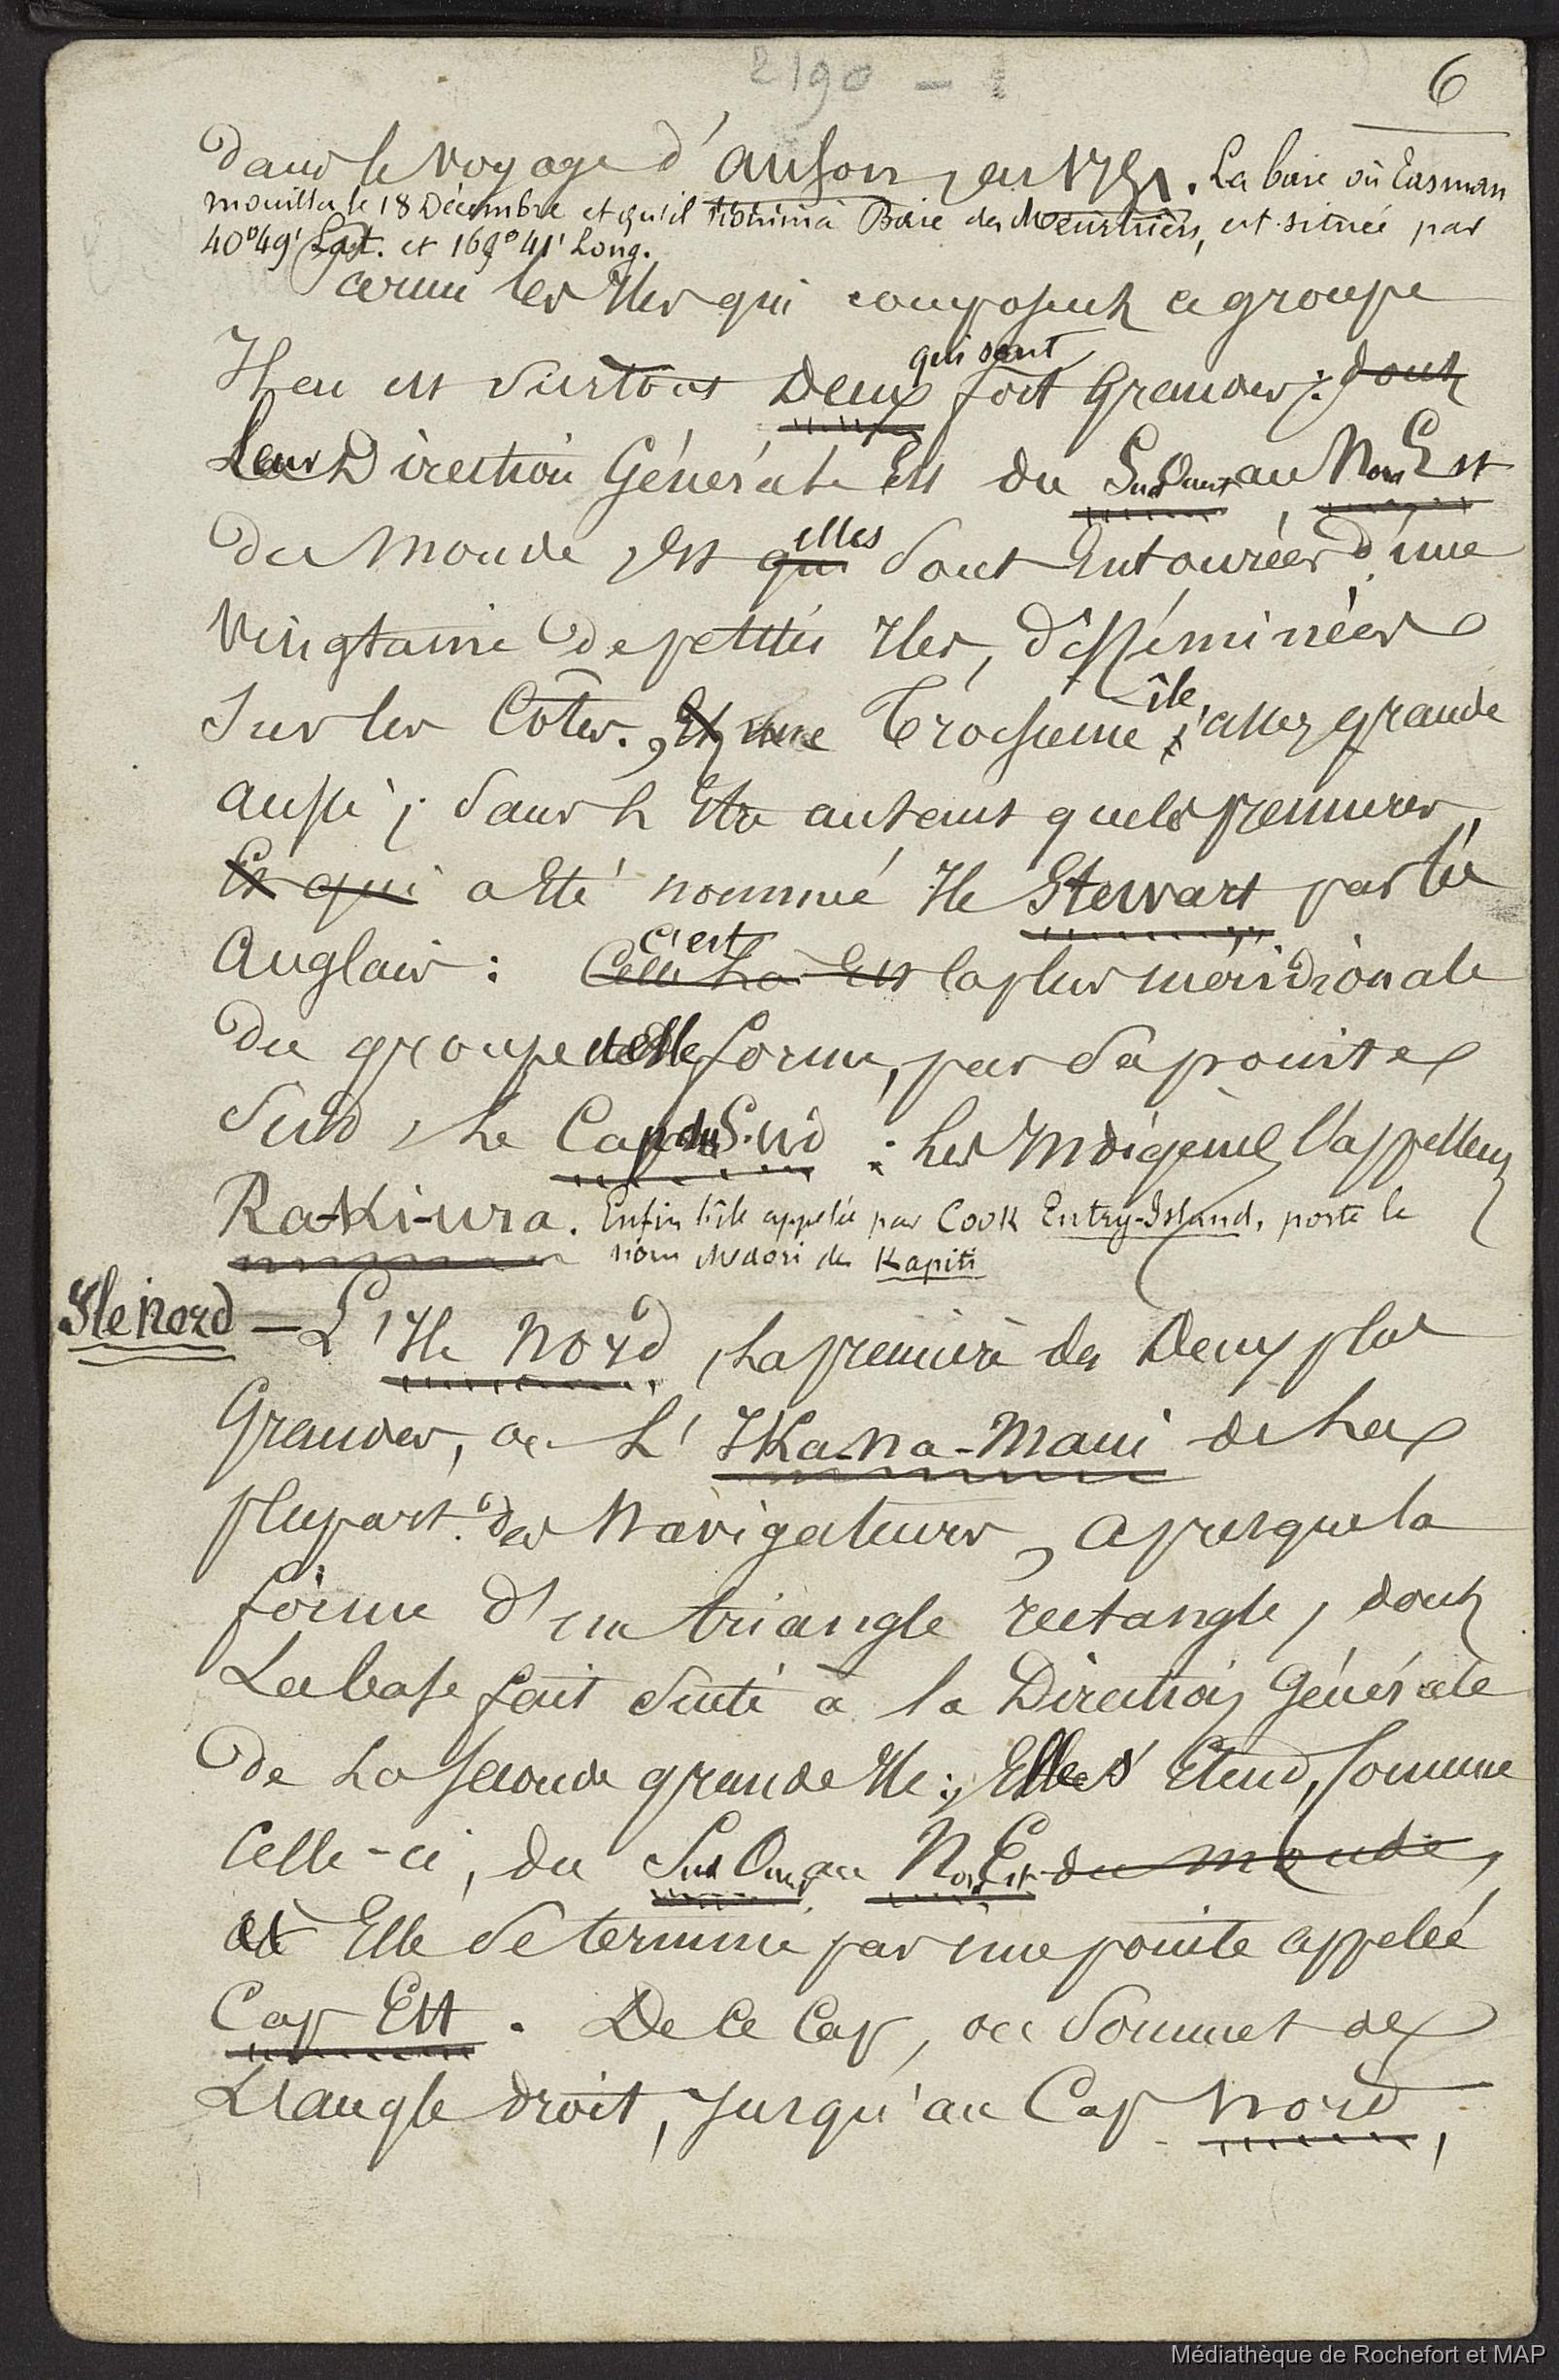 2190 - 1
6
Dans le voyage d'Anson, en 1751. La baie où Tasman
mouilla le 18 Décembre et qu'il nomma Baie des Meurtriers, est située par
40°49' Lat. et 169° 41' Long.
Parmi les Iles qui composent ce groupe
Il en est surtout Deux qui sont fort Grandes : dont
Leur Direction Générale Est du Sud Ouest au Nord Est
Du Monde, Et qui elles sont Entourées d'une
Vingtaine De petites Iles, Disséminées
Sur les Côtes. Et une Troisieme île, assez grande
aussi, sans L'Etre autant que les premieres,
Et qui a Eté nommé Ile Stewart par les
Anglais : Celle-Là Est c'est la plus méridionale
Du groupe et Elle forme, par Sa pointe
Sud, Le Cap du Sud : Les Indigènes l'appellent
Ra-Ki-ura. Enfin l'île appelée par Cook Entry-Island, porte le
nom Maori de Kapiti
Ile Nord — L'Ile Nord, La premiere des Deux plus
Grandes, ou L'IKa-Na-Maui de La
plupart des Navigateurs, a presque la
forme d'un triangle rectangle, dont
La base fait suite à la Direction Générale
De La seconde grande Ile ; Elle s'Etend, Comme
Celle-ci, du Sud Ouest au Nord Est du monde,
et Elle se termine par une pointe appelée
Cap Est. De Ce Cap, ou Sommet de
L'angle droit, Jusqu'au Cap Nord,
Médiathèque de Rochefort et MAP